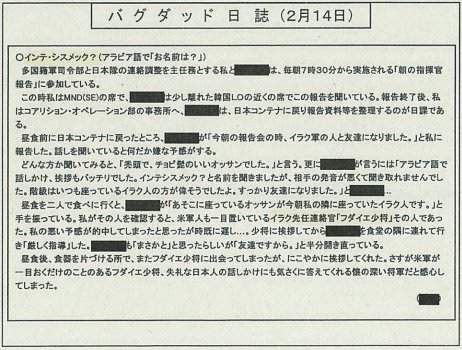 バグダッド日誌（２月14日）
○インテ・シスメック？（アラビア語で「お名前は？」）
多国籍軍司令部と日本隊の連絡調整を主任務とする私と は、毎朝７時30分から実施される「朝の指揮官
報告」に参加している。
この時私はMND(SE)の席で、 は少し離れた韓国LOの近くの席でこの報告を聞いている。報告終了後、私
はコアリション・オペレーション部の事務所へ、 は、日本コンテナに戻り報告資料等を整理するのが日課であ
る。
昼食前に日本コンテナに戻ったところ、 が「今朝の報告会の時、イラク軍の人と友達になりました。」と私に
報告した。話しを聞いていると何だか嫌な予感がする。
どんな方か聞いてみると、「禿頭で、チョビ髭のいいオッサンでした。」と言う。更に が言うには「アラビア語で
話しかけ、挨拶もバッチリでした。インテシスメック？と名前を聞きましたが、相手の発音が悪くて聞き取れませんで
した。階級はいつも座っているイラク人の方が偉そうでしたよ。すっかり友達になりました。」と …
昼食を二人で食べに行くと、 が「あそこに座っているオッサンが今朝私の隣に座っていたイラク人です。」と
手を振っている。私がその人を確認すると、米軍人も一目置いているイラク先任連絡官「フダイエ少将」その人であっ
た。私の悪い予感が的中してしまったと思ったが時既に遅し…。少将に挨拶してから を食堂の隅に連れて行
き「厳しく指導」した。 も「まさかと」思ったらしいが「友達ですから。」と半分開き直っている。
昼食後、食器を片づける所で、またフダイエ少将に出会ってしまったが、にこやかに挨拶してくれた。さすが米軍が
一目おくだけのことのあるフダイエ少将、失礼な日本人の話しかけにも気さくに答えてくれる懐の深い将軍だと感心し
てしまった。
（ ）